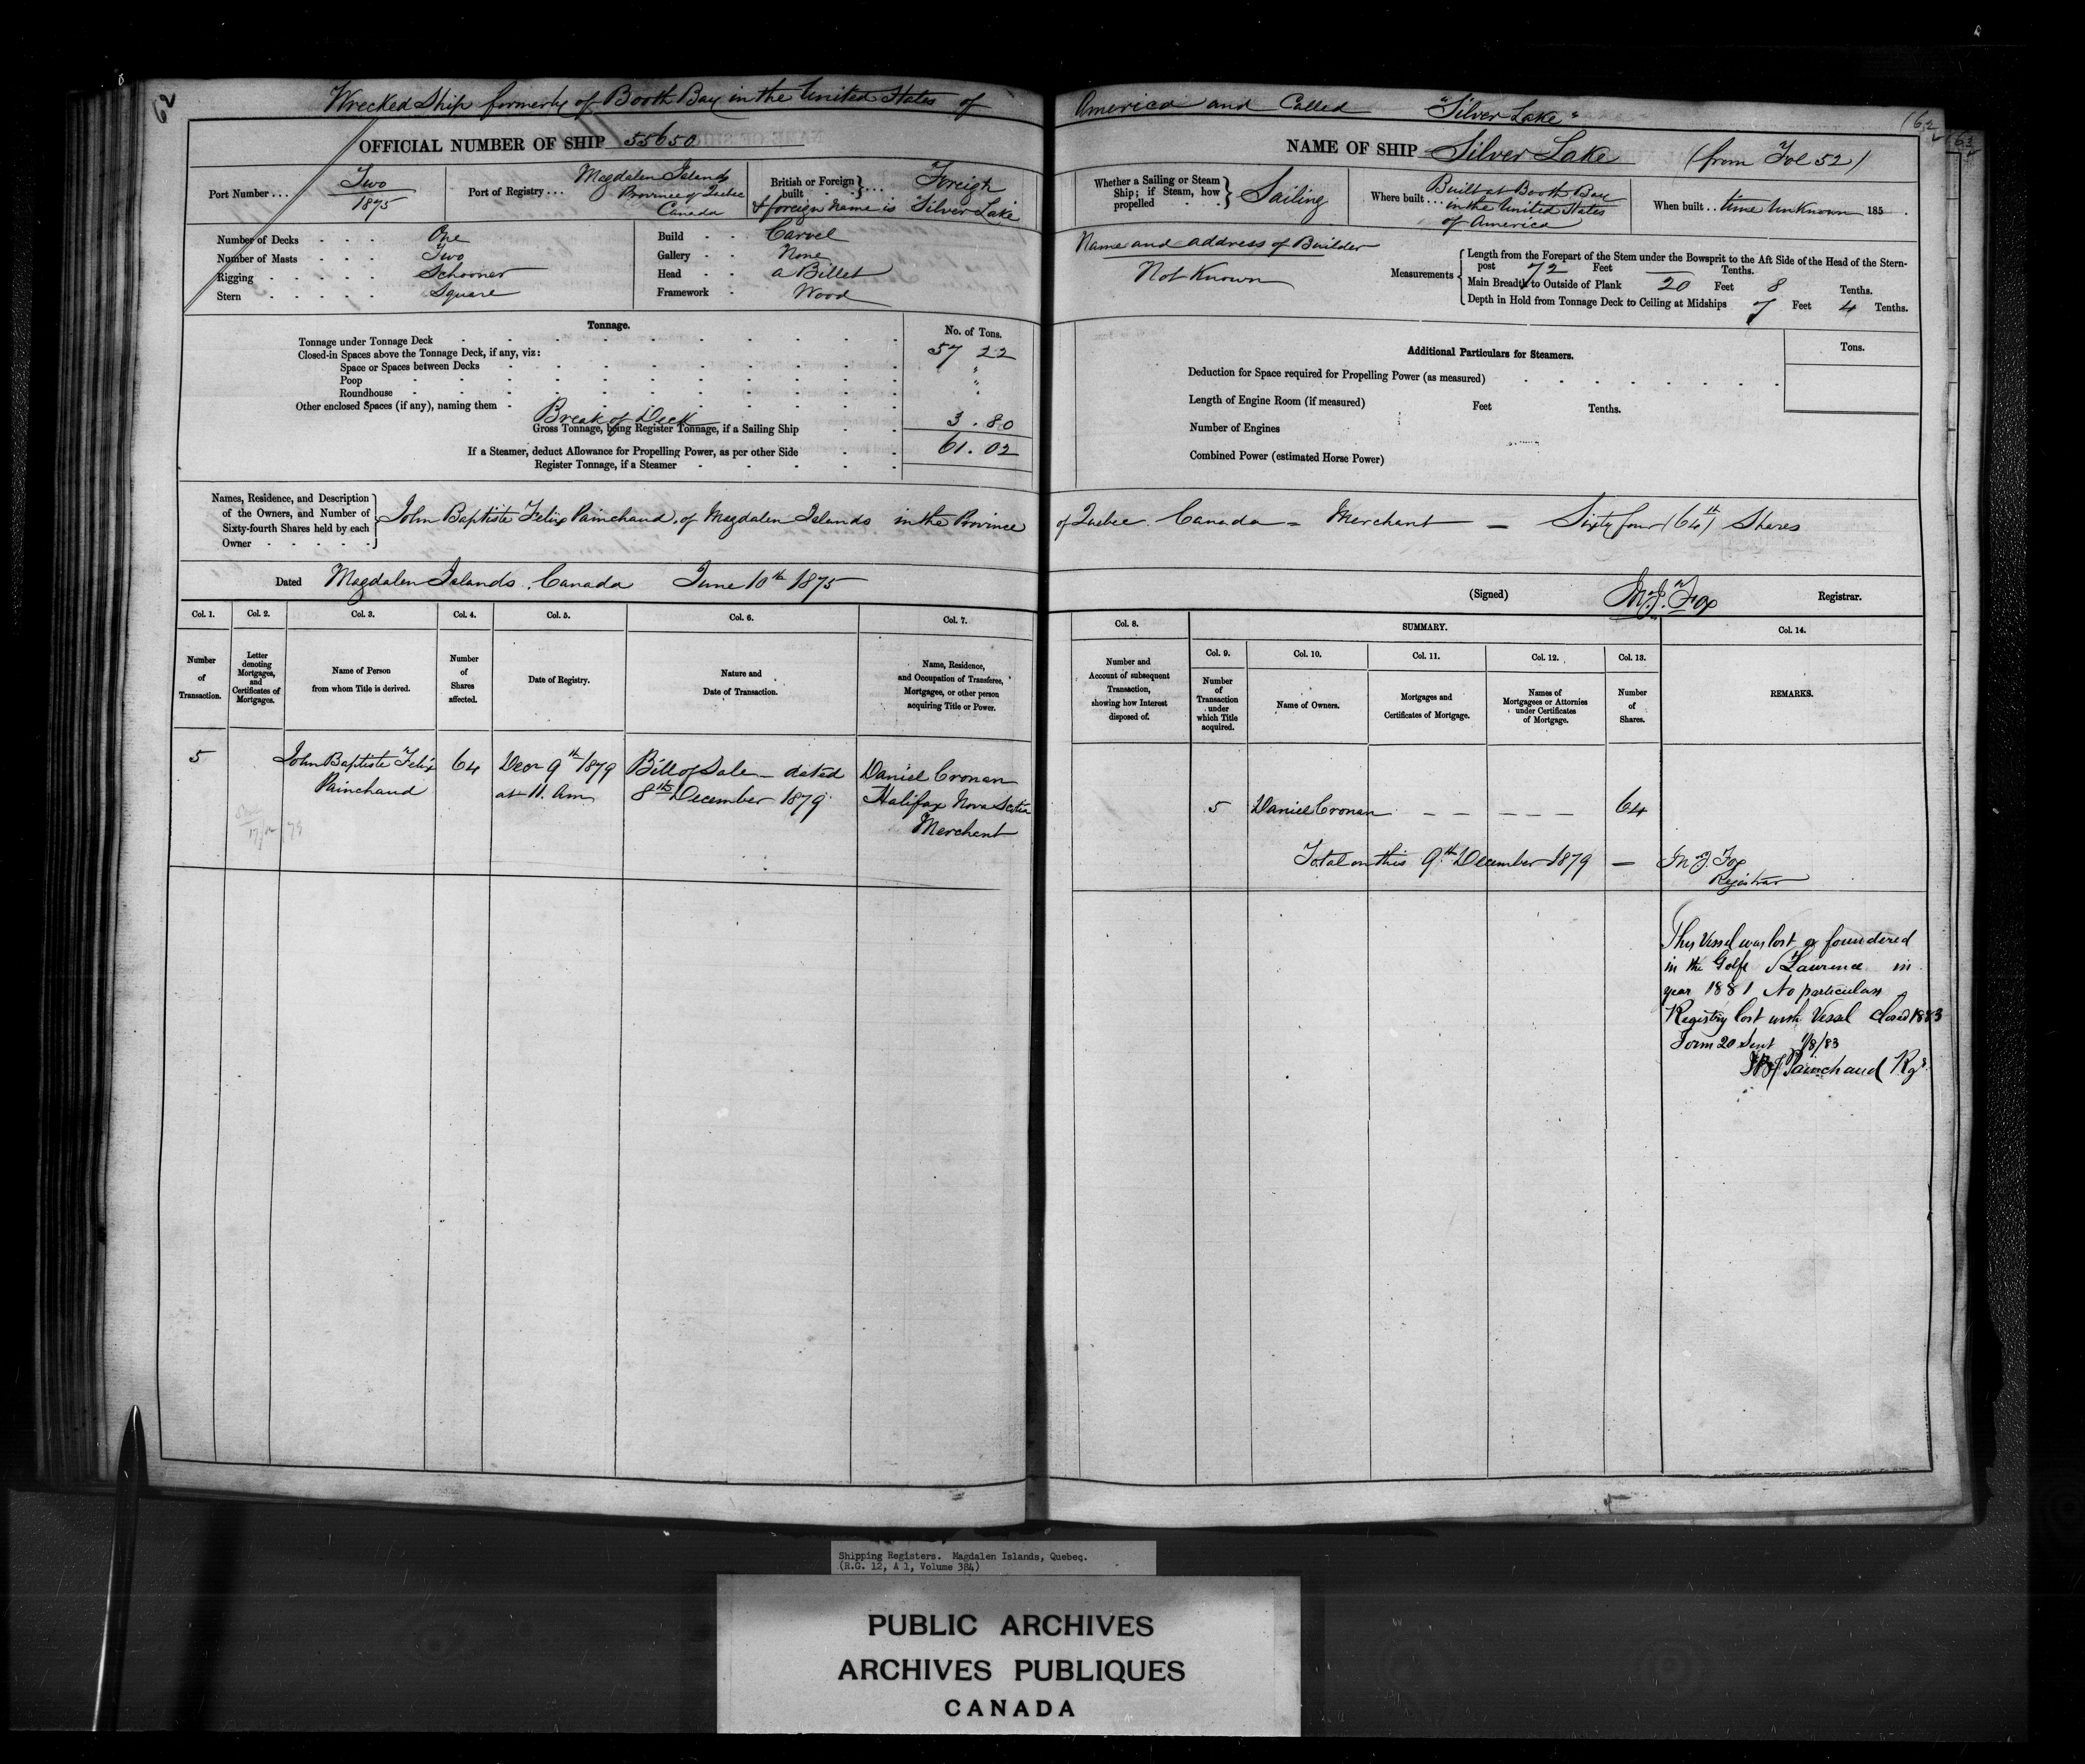 Wrecked Ship formerly of Booth Bay in the United States of America and Called "Silver Lake"
62
OFFICIAL NUMBER OF SHIP 55650
Port Number ... Two
1875
Port of Registry ... Magdalen Islands
Province of Quebec
Canada
British or Foreign built ... Foreign
& foreign name is Silver Lake
Number of Decks . . . One
Number of Masts . . . Two
Rigging . . . . . Schooner
Stern . . . . . Square
Build . . Carvel
Gallery . . None
Head . . a Billet
Framework . Wood
Tonnage.
No. of Tons.
Tonnage under Tonnage Deck 57 22
Closed-in Spaces above the Tonnage Deck, if any, viz:
Space or Spaces between Decks "
Poop "
Roundhouse "
Other enclosed Spaces (if any), naming them
Break of Deck 3 . 80
Gross Tonnage, being Register Tonnage, if a Sailing Ship 61 . 02
If a Steamer, deduct Allowance for Propelling Power, as per other Side
Register Tonnage, if a Steamer
Names, Residence, and Description
of the Owners, and Number of
Sixty-fourth Shares held by each
Owner
John Baptiste Felix Painchaud of Magdalen Islands in the Province
Dated Magdalen Islands. Canada June 10th 1875
Col. 1. Col. 2. Col. 3. Col. 4. Col. 5. Col. 6. Col. 7.
Number of Transaction.
Letter denoting Mortgages, and Certificates of Mortgages.
Name of Person from whom Title is derived.
Number of Shares affected.
Date of Registry.
Nature and Date of Transaction.
Name, Residence, and Occupation of Transferee, Mortgagee, or other person acquiring Title or Power.
5 John Baptiste Felix 64 Decr 9th 1879 Bill of Sale – dated Daniel Cronan
Painchaud at 11. am 8th December 1879 Halifax Nova Scotia
Merchant
62
63
NAME OF SHIP Silver Lake (from Fol 52)
Whether a Sailing or Steam Ship; if Steam, how propelled Sailing
Where built ... Built at Booth Bay
in the United States
of America
When built .. time Unknown 185 .
Name and address of Builder
Not Known
Measurements
Length from the Forepart of the Stem under the Bowsprit to the Aft Side of the Head of the Stern-
post 72 Feet — Tenths.
Main Breadth to Outside of Plank 20 Feet 8 Tenths.
Depth in Hold from Tonnage Deck to Ceiling at Midships 7 Feet 4 Tenths.
Additional Particulars for Steamers.
Tons.
Deduction for Space required for Propelling Power (as measured)
Length of Engine Room (if measured) Feet Tenths.
Number of Engines
Combined Power (estimated Horse Power)
of Quebec Canada – Merchant – Sixty four (64th) Shares
(Signed) M.J. Fox Registrar.
Col. 8. SUMMARY. Col. 14.
Col. 9. Col. 10. Col. 11. Col. 12. Col. 13.
Number and Account of subsequent Transaction, showing how Interest disposed of.
Number of Transaction under which Title acquired.
Name of Owners.
Mortgages and Certificates of Mortgage.
Names of Mortgagees or Attornies under Certificates of Mortgage.
Number of Shares.
REMARKS.
5 Daniel Cronan – – – – – 64
Total on this 9th December 1879 – M J Fox
Registrar
This Vessel was lost or foundered
in the Golfe St Lawrence in
year 1881 No particulars
Registry lost with Vessel Closed 1883
Form 20 sent 1/8/83
JBF Painchaud Rgr
Shipping Registers. Magdalen Islands, Quebec.
(R.G. 12, A 1, Volume 384)
PUBLIC ARCHIVES
ARCHIVES PUBLIQUES
CANADA